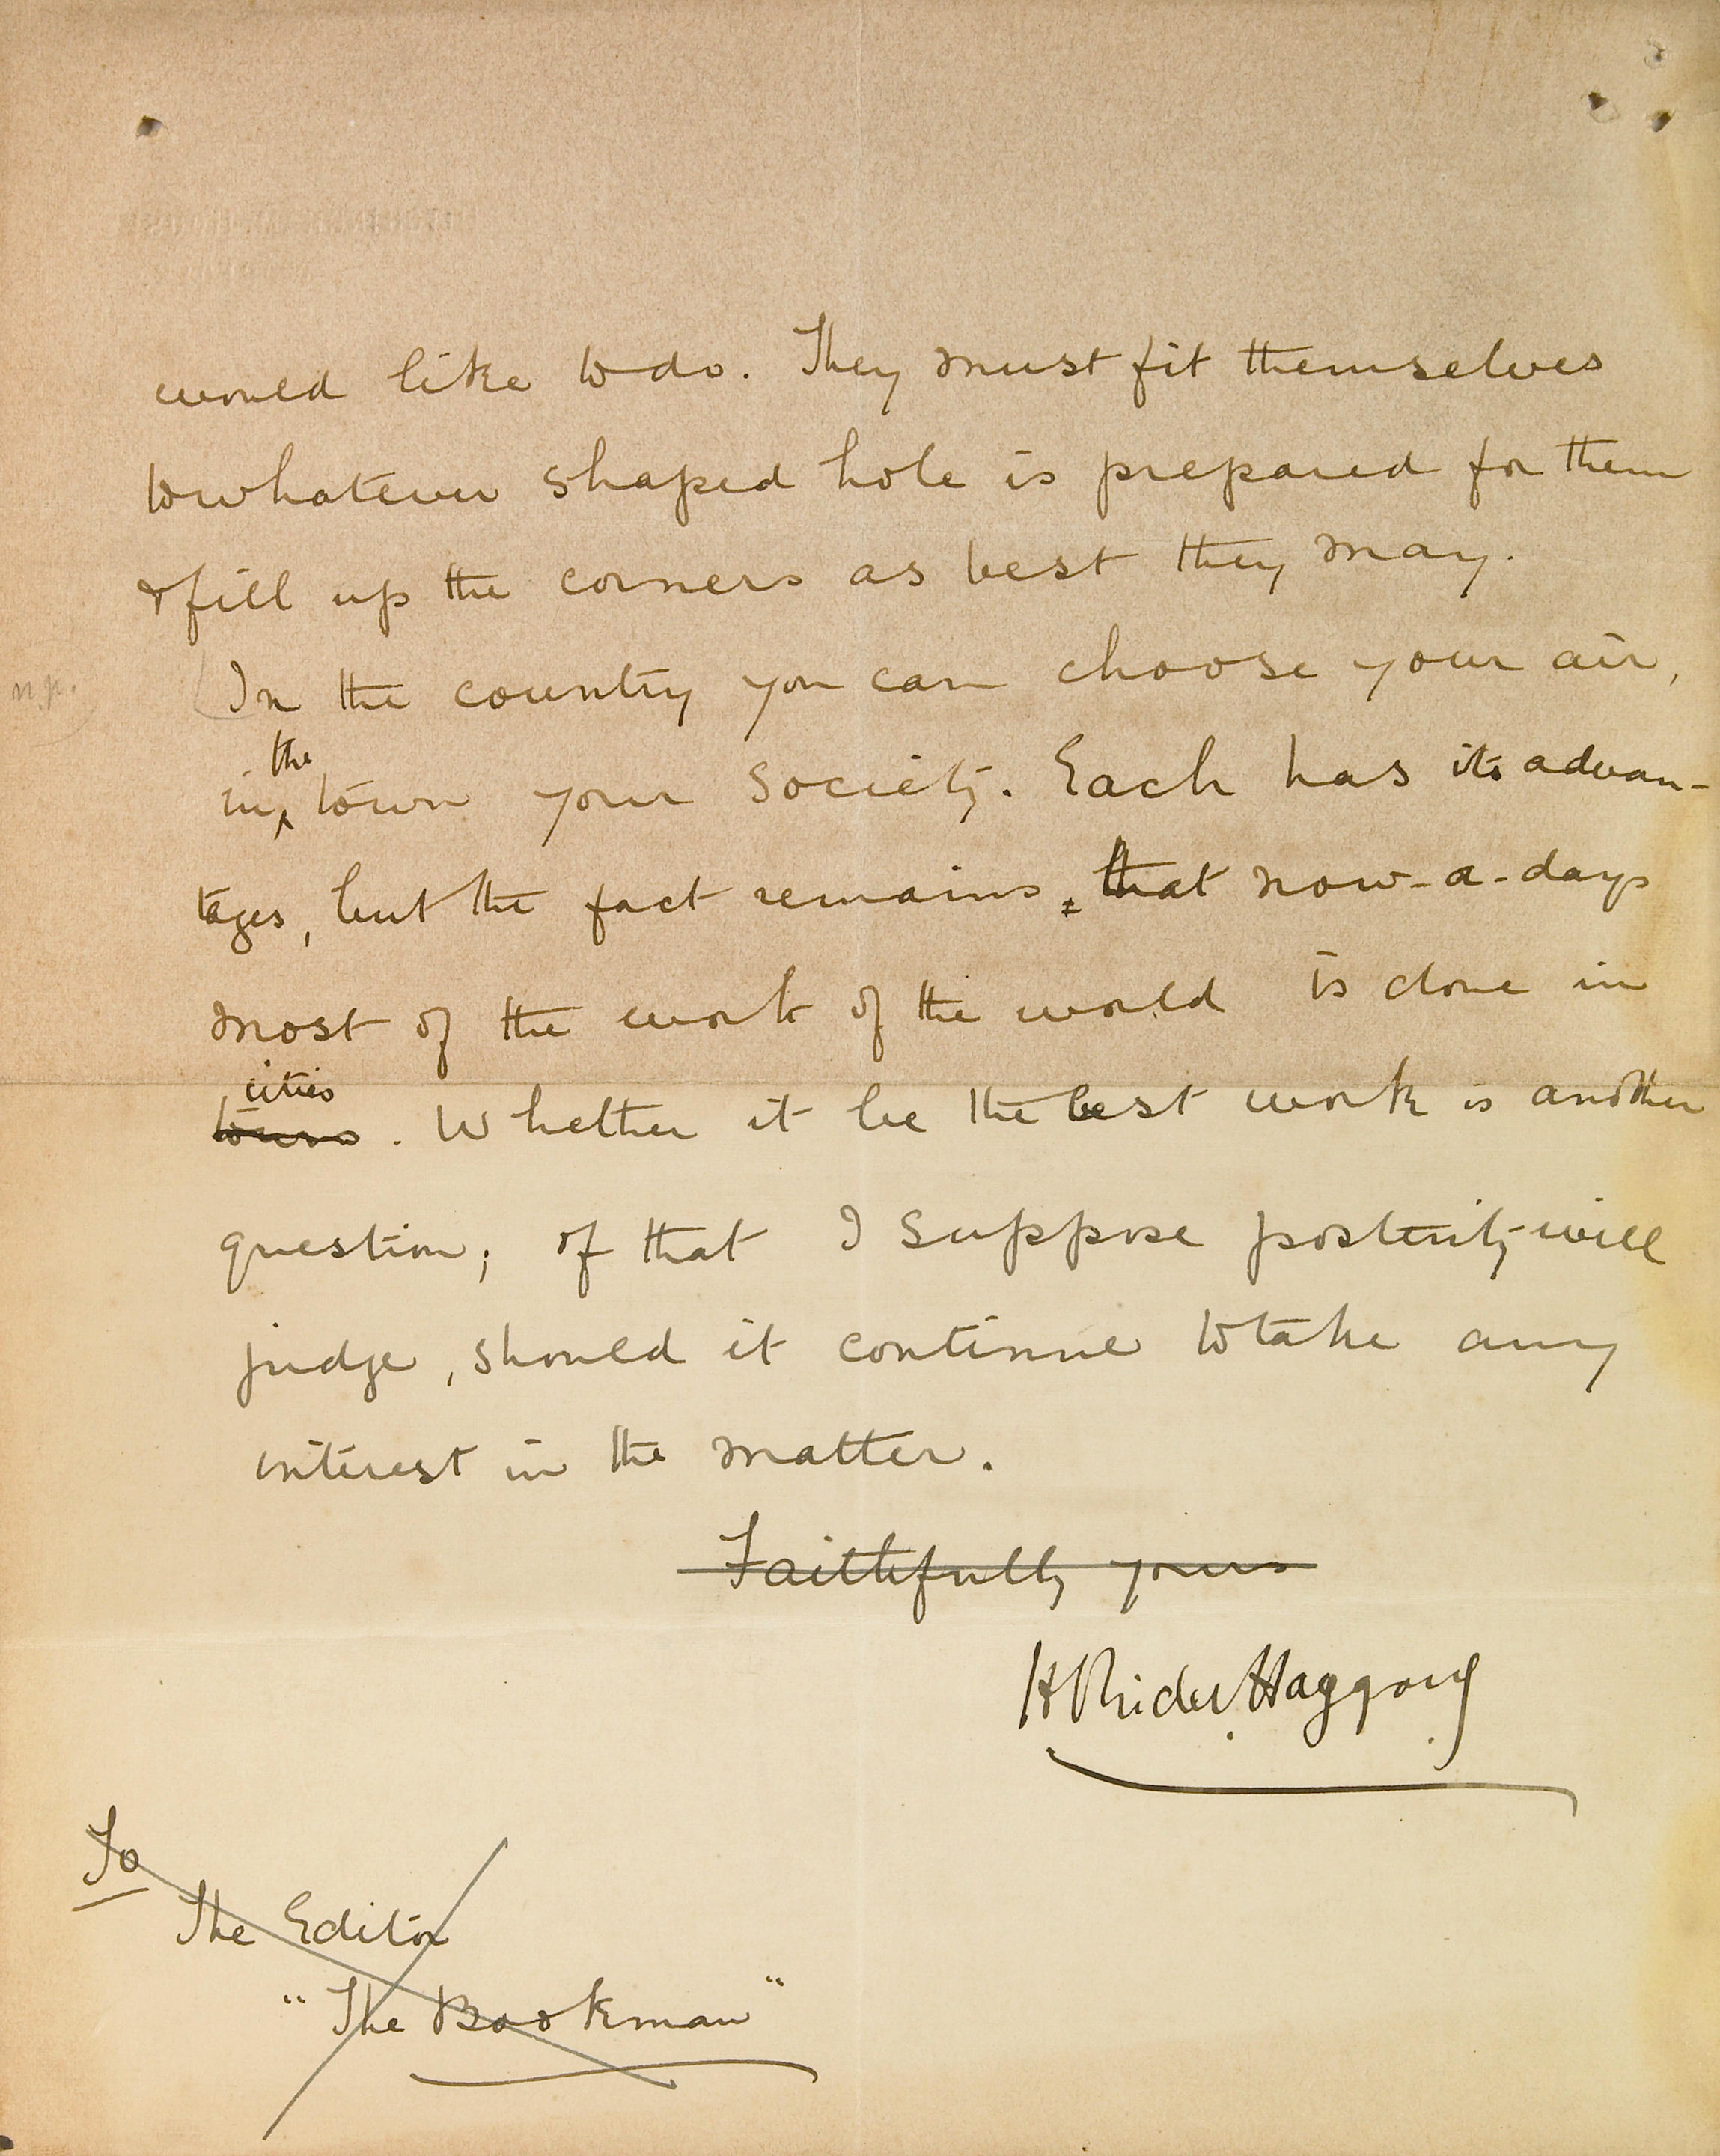 would like to do. They must fit themselves
to whatever shaped hole is prepared for them
& fill up the corners as best they may.
n.p. In the country you can choose your air,
in the town your society. Each has its advan-
tages, but the fact remains, that now-a-days
most of the work of the world is done in
cities
towns. Whether it be the best work is another
question; of that I suppose posterity will
judge, should it continue to take any
interest in the matter.
Faithfully yours
H Rider Haggard
To
The Editor
"The Bookman"